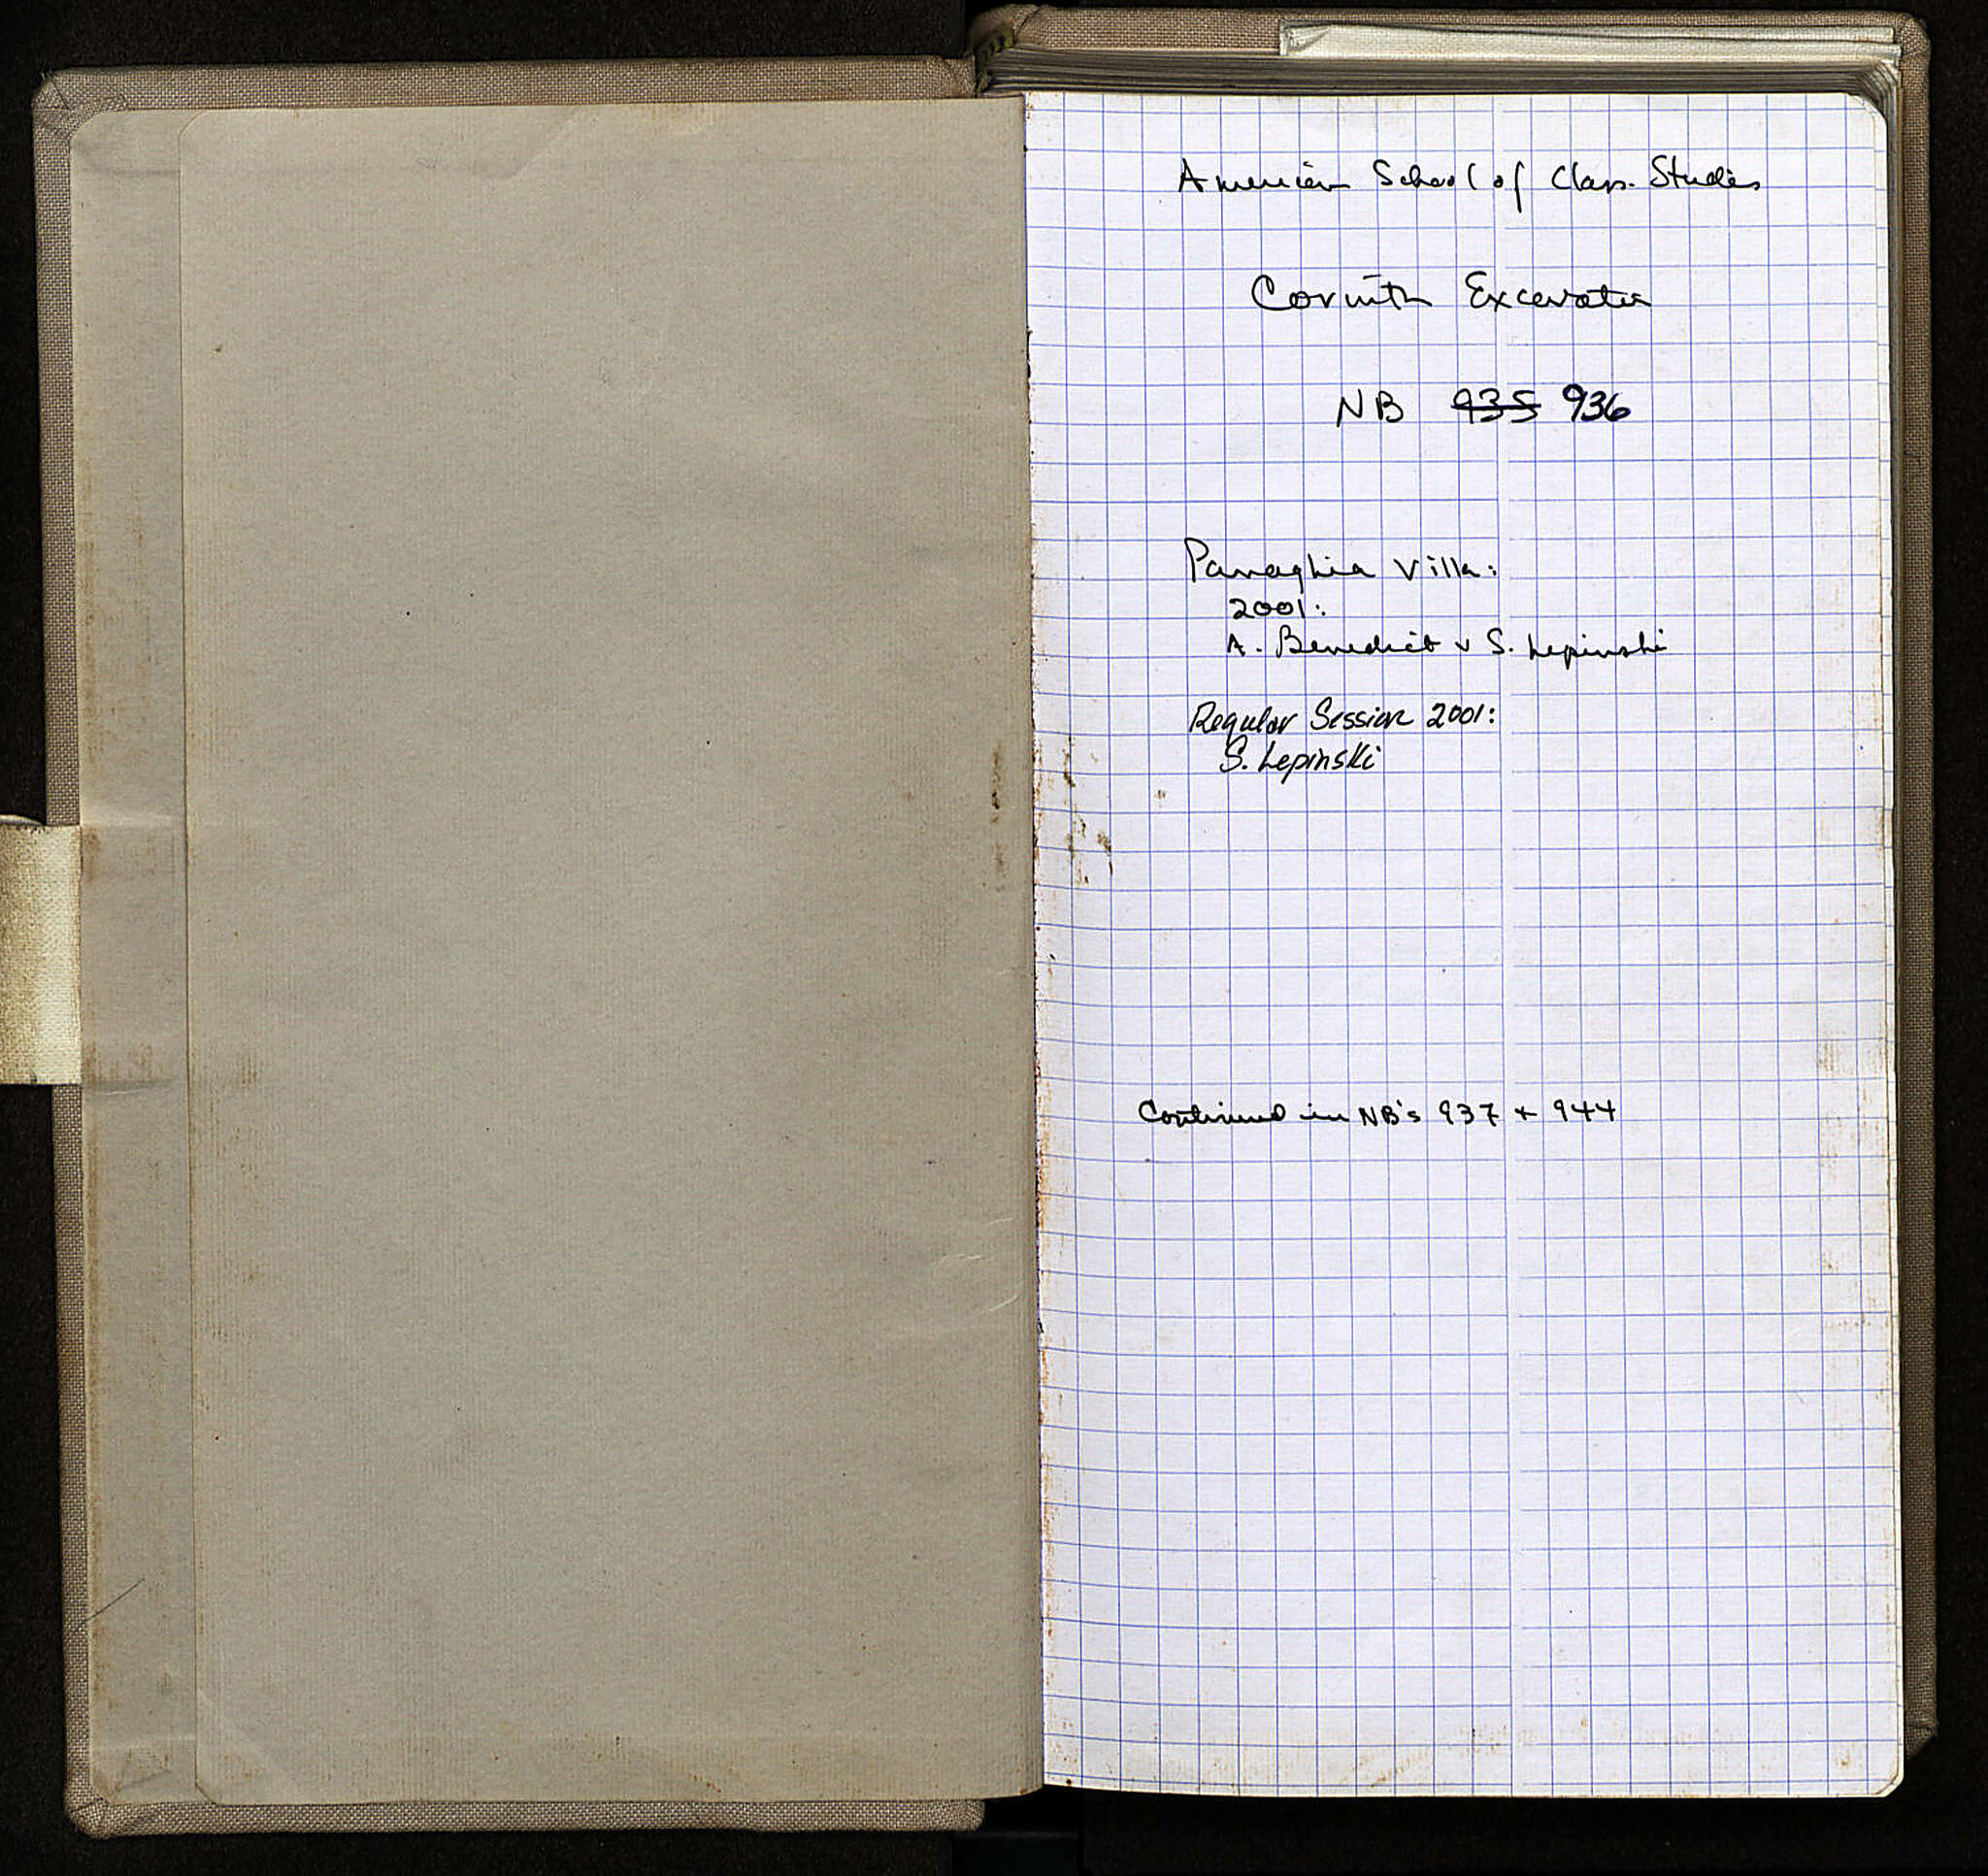 American School of Class. Studies
Corinth Excavation
NB 935 936
Panaghia Villa:
2001:
A. Benedict & S. Lepinski
Regular Session 2001:
S. Lepinski
Continued in NB's 937 + 944